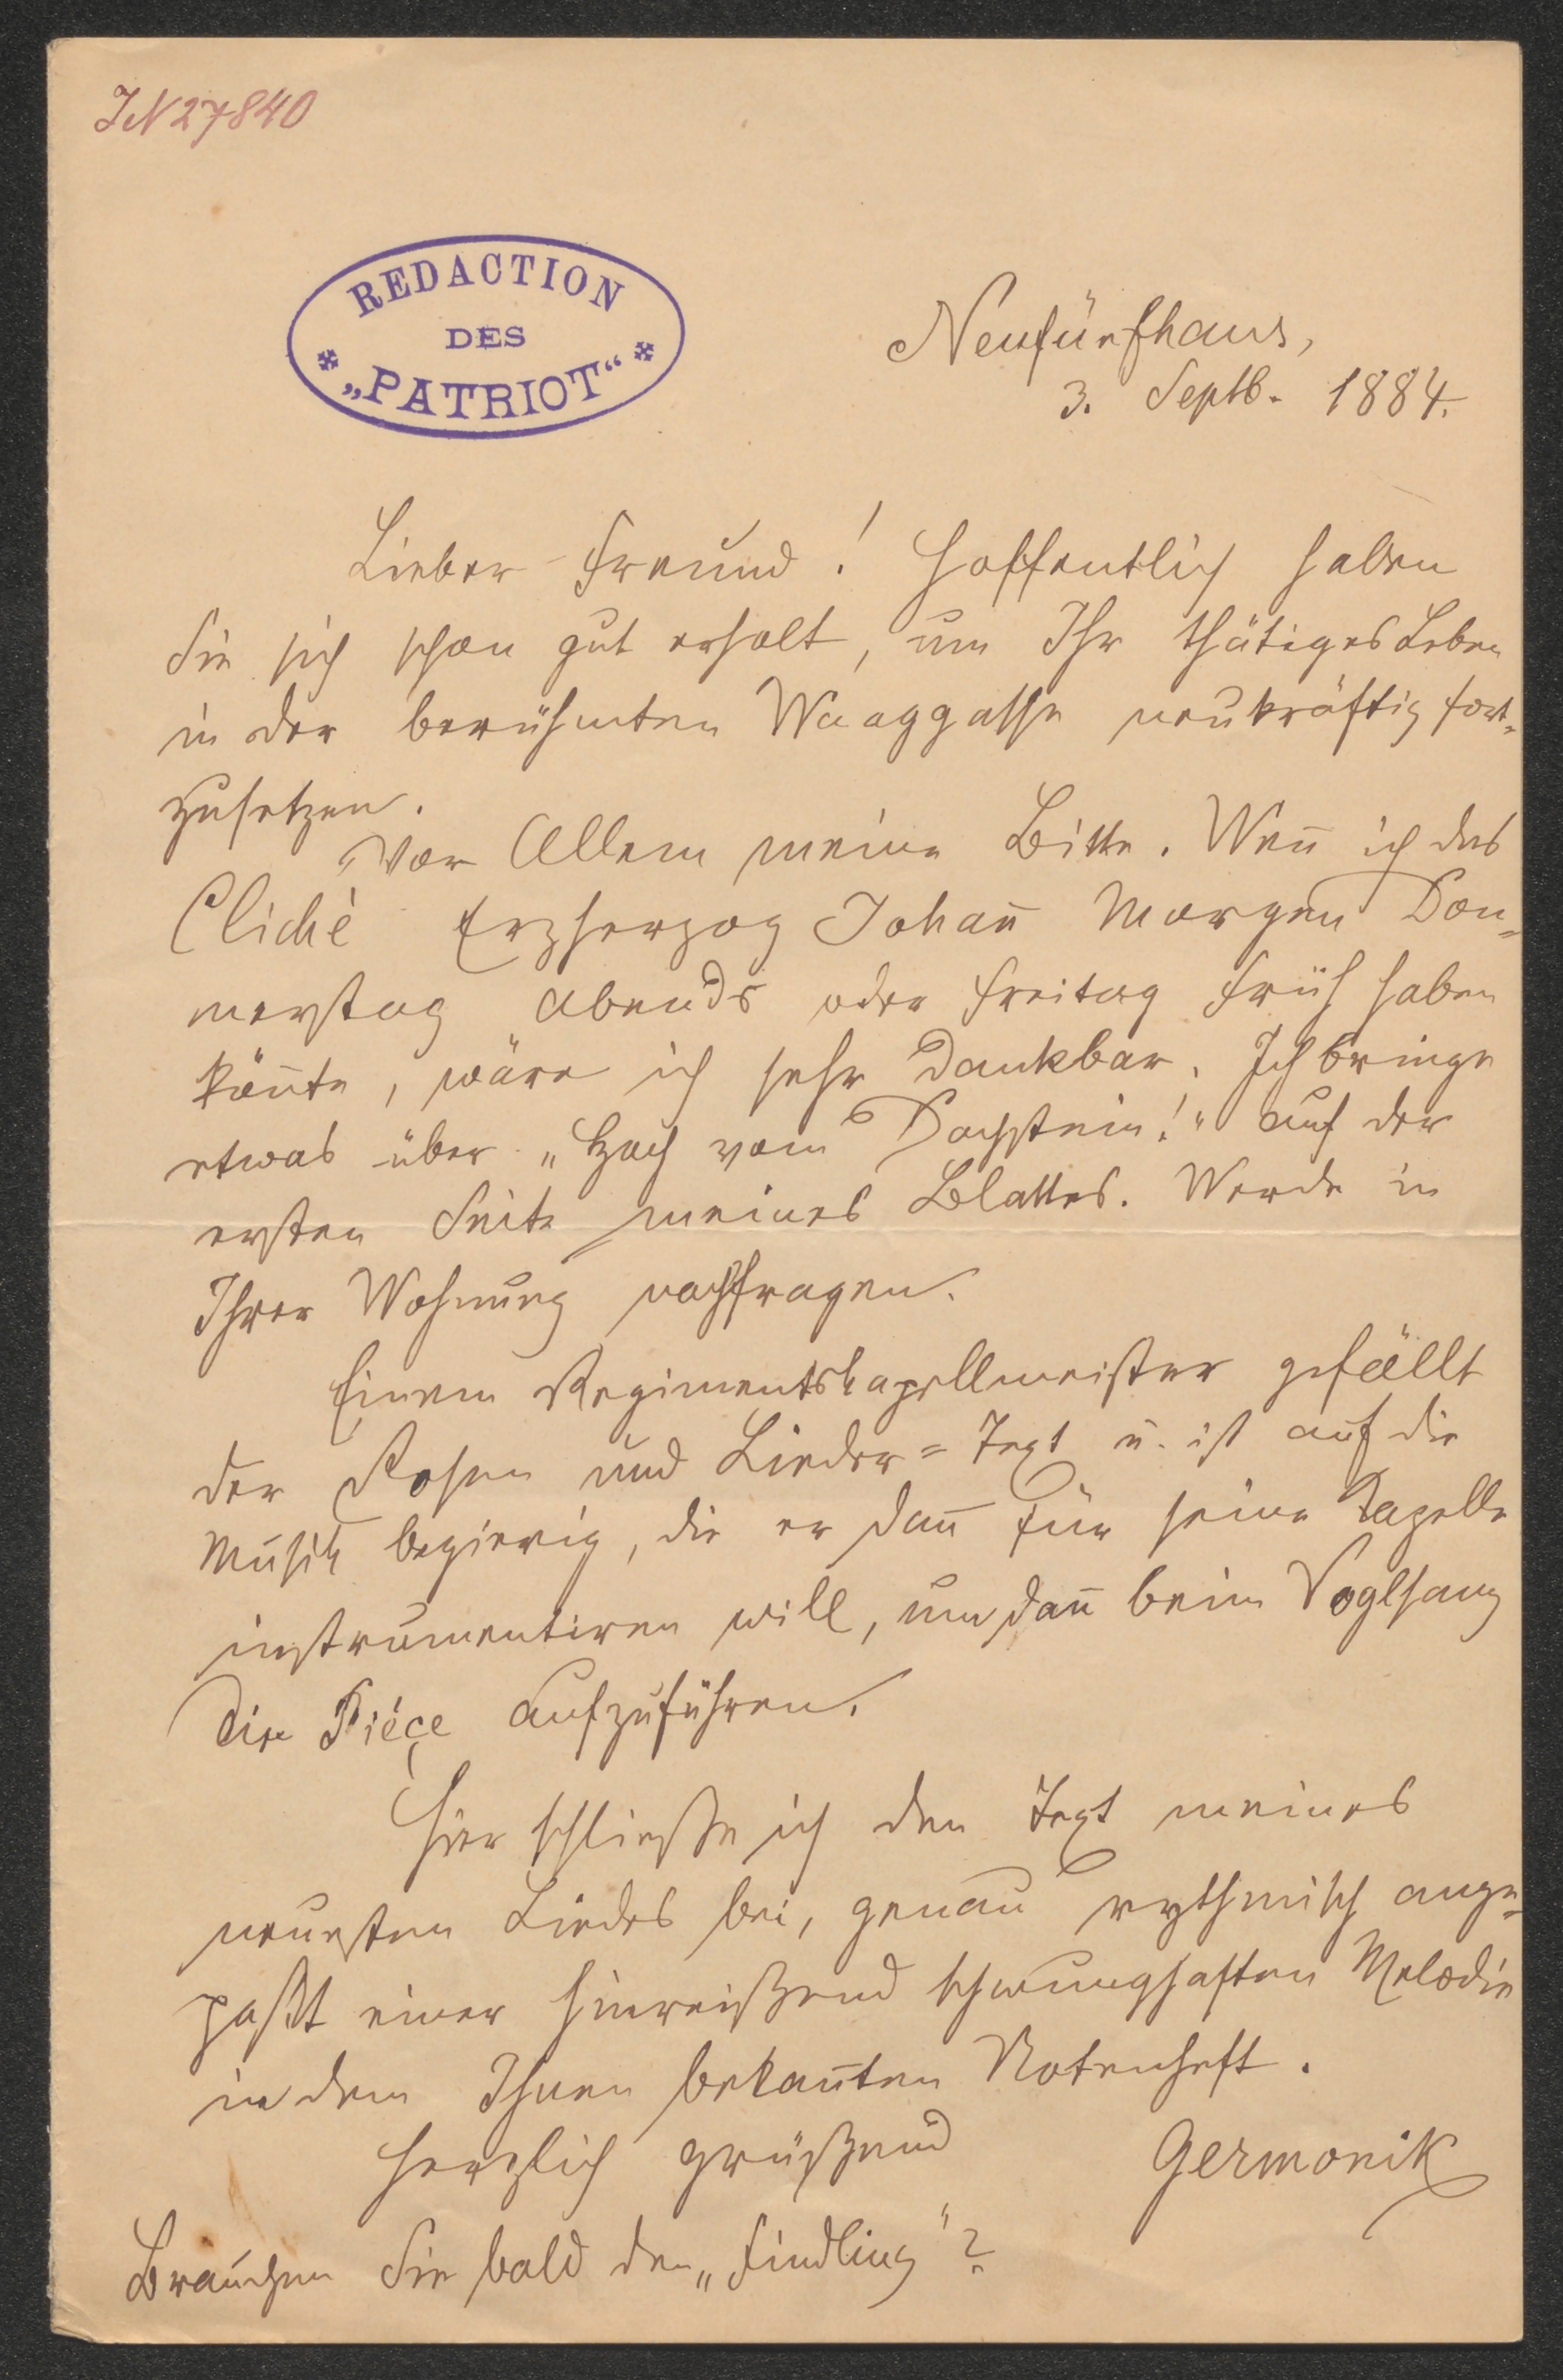 IN 27840
REDACTION
DES
„PATRIOT“
Neufünfhaus,
3. Septb. 1884.
Lieber Freund! Hoffentlich haben
Sie sich schon gut erholt, um Ihr thätiges Leben
in der berühmten Waaggasse neukräftig fort-
zusetzen.
Vor Allem meine Bitte. Weñ ich das
Clichè Erzherzog Johañ Morgen Don-
nerstag Abends oder Freitag Früh haben
köñte, wäre ich sehr dankbar. Ich bringe
etwas über „Hoch vom Dachstein!“ auf der
ersten Seite meines Blattes. Werde in
Ihrer Wohnung nachfragen.
Einem Regimentskapellmeister gefällt
der Rosen und Lieder-Text u. ist auf die
Musik begierig, die er dañ für seine Kapelle
instrumentiren will, um dañ beim Voglsang
die Pièçe aufzuführen.
Hier schließe ich den Text meines
neuesten Liedes bei, genau rythmisch ange-
paßt einer hinreißend schwunghaften Melodie
in dem Ihnen bekañten Notenheft.
Herzlich grüßend
Germonik
Brauchen Sie bald den „Findling“?